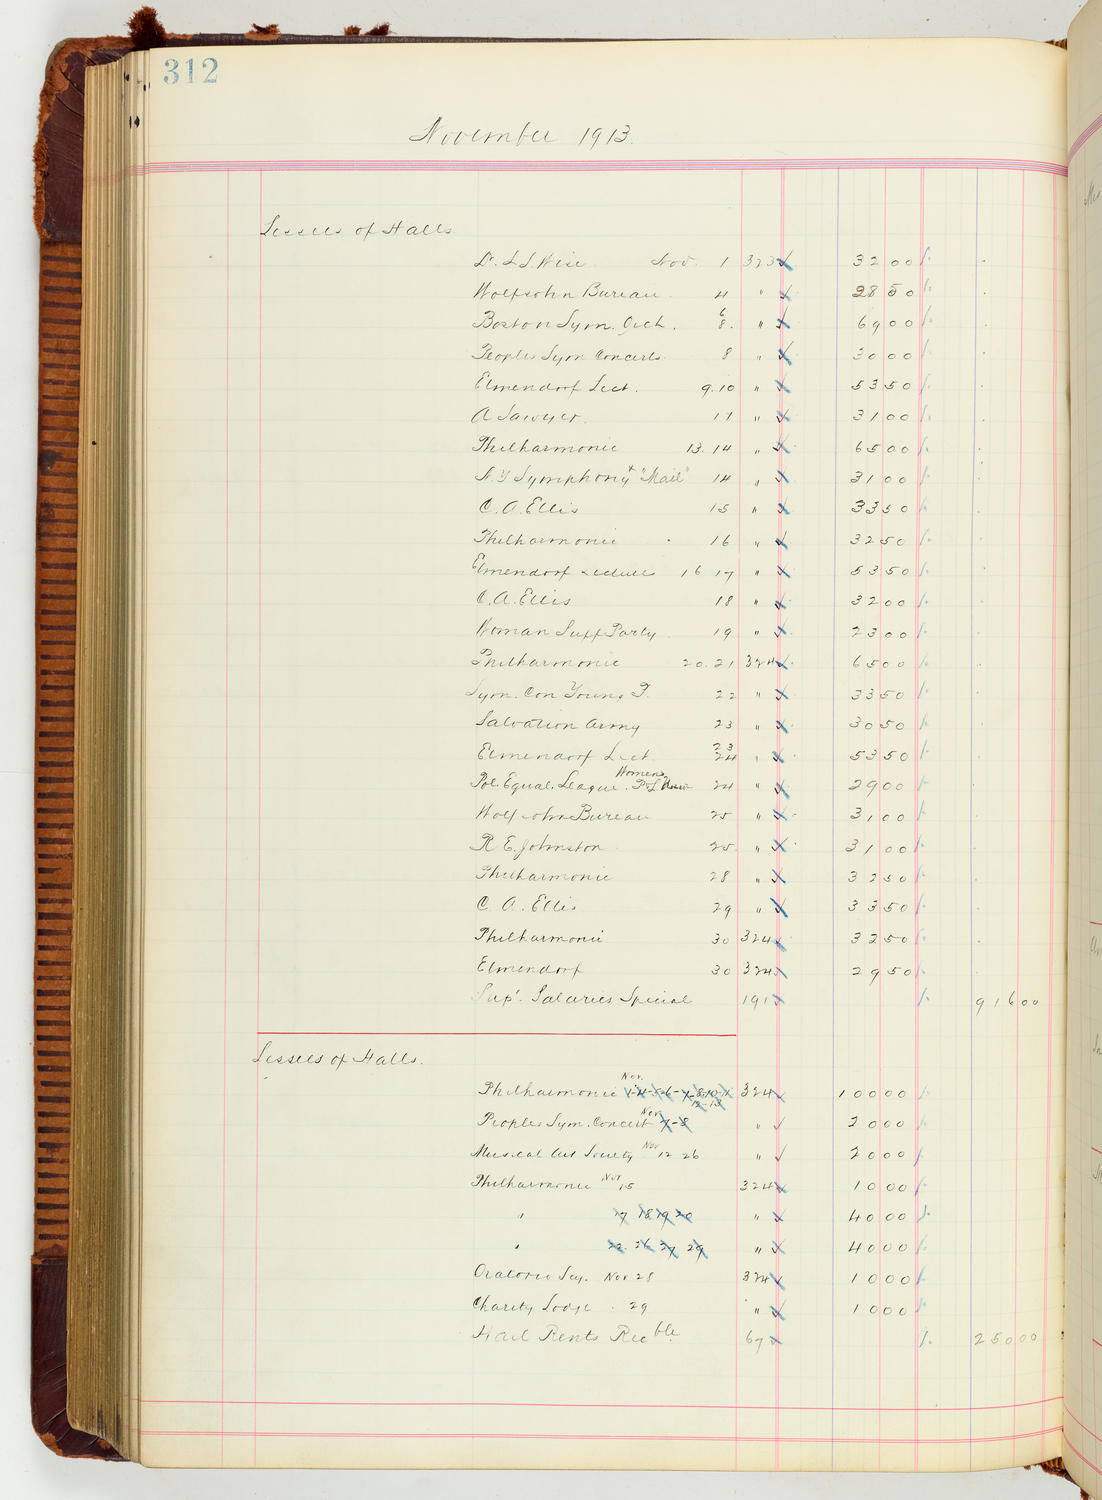 312
November 1913.
Lessees of Halls
Dr. S. S. Wise Nov. 1 323 32 00
Wolfsohn Bureau. 4 " 28 50
Boston Sym. Orch. 6 8. " 69 00
Peoples Sym Concerts 8 " 30 00
Elmendorf Lect. 9.10 " 53 50
A Sawyer. 11 " 31 00
Philharmonic 13. 14 " 65 00
N. Y Symphony + "Mail" 14 " 31 00
C. A. Ellis 15 " 33 50
Philharmonic 16 " 32 50
Elmendorf Lecture 16 17 " 53 50
C. A. Ellis 18 " 32 00
Woman Suff Party 19 " 23 00
Philharmonic 20. 21 324 65 00
Sym. Con Young P. 22 " 33 50
Salvation Army 23 " 30 50
Elmendorf Lect. 23 24 " 53 50
Pol. Equal. League. Womens P. L Union 24 " 29 00
Wolfsohn Bureau 25 " 31 00
R. E. Johnston 25 " 31 00
Philharmonic 28 " 32 50
C. A. Ellis 29 " 33 50
Philharmonic 30 324 32 50
Elmendorf 30 324 29 50
Sup'. Salaries Special 191 916 00
Lessees of Halls.
Philharmonic Nov. 1-4-5-6-7-8-10-11 12-13 324 100 00
Peoples Sym. Concert Nov 7-8 " 20 00
Musical Art Society Nov 12 26 " 20 00
Philharmonic Nov 15 324 10 00
" 17 18 19 20 " 40 00
" 22. 26 27 29 " 40 00
Oratorio Soy. Nov 28 324 10 00
Charity Lodge . 29 " 10 00
Hall Rents Recble 67 250 00